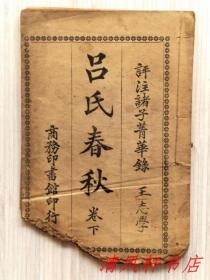 評注諸子菁華錄
王志學
呂氏春秋
卷下
商務印書館印行
清風軒书店